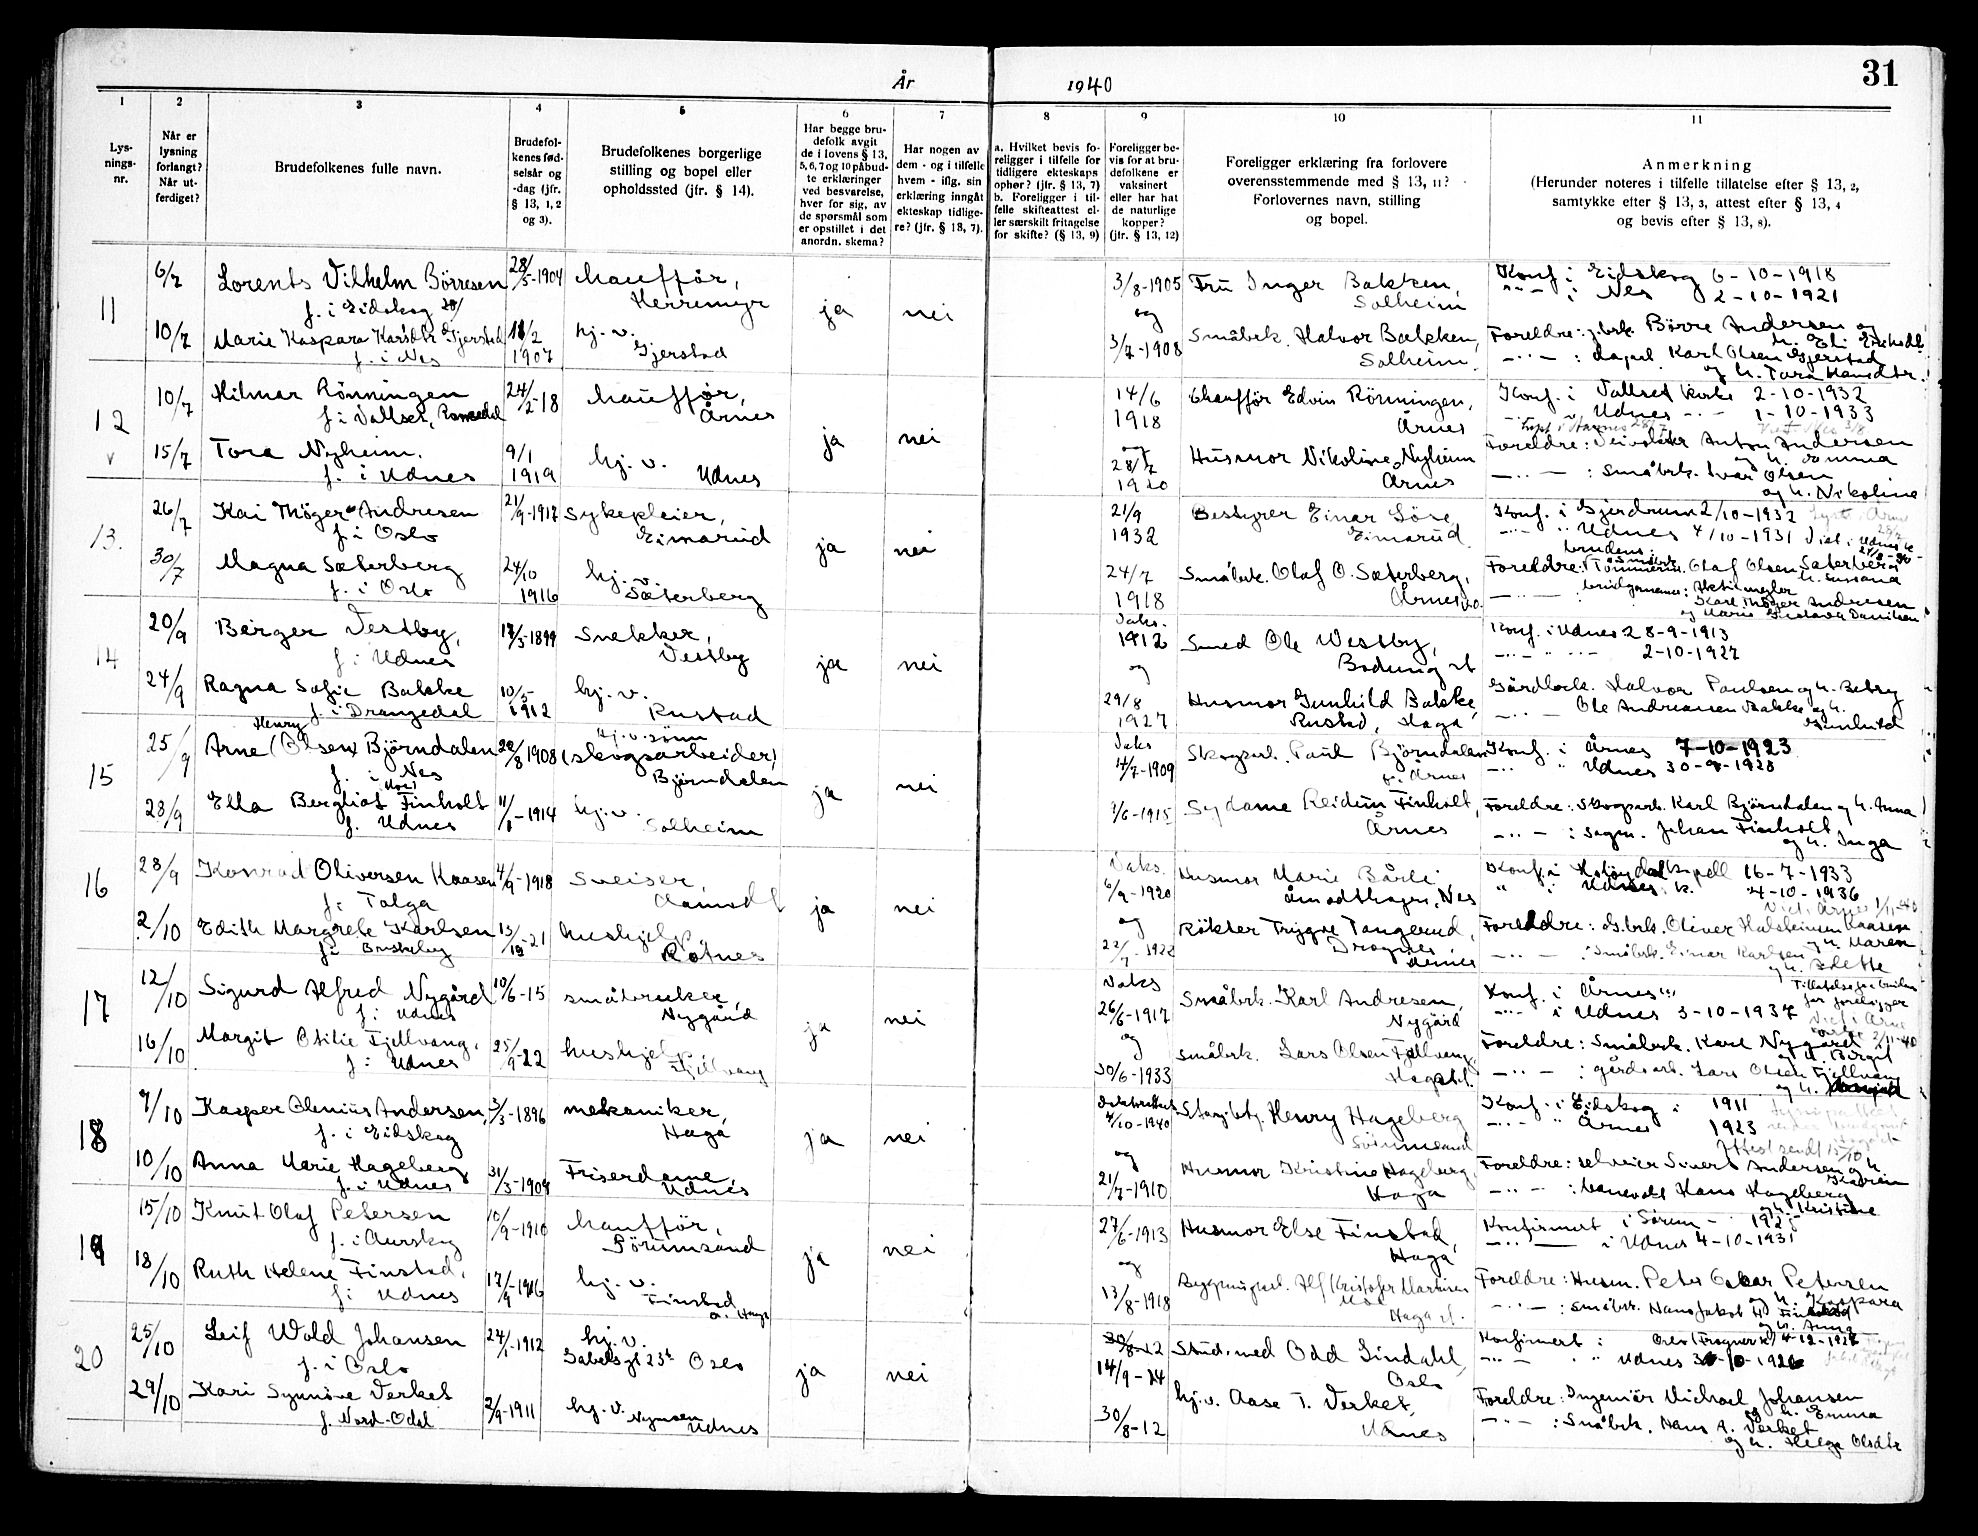 31
År 1940
1
2
3
4
5
6
7
8
9
10
11
Lys-
nings-
nr.
Når er
lysning
forlangt?
Når ut-
ferdiget?
Brudefolkenes fulle navn.
Brudefol-
kenes fød-
selsår og
-dag (jfr.
§ 13, 1, 2
og 3).
Brudefolkenes borgerlige
stilling og bopel eller
opholdssted (jfr. § 14).
Har begge bru-
defolk avgit
de i lovens § 13,
5, 6, 7 og 10 påbud-
te erklæringer
ved besvarelse,
hver for sig, av
de spørsmål som
er opstillet i det
anordn. skema?
Har nogen av
dem - og i tilfelle
hvem - iflg. sin
erklæring inngåt
ekteskap tidlige-
re? (jfr. § 18, 7).
a. Hvilket bevis fo-
religger i tilfelle for
tidligere ekteskaps
ophør? (jfr. § 13, 7)
b. Foreligger i til-
felle skifteattest el-
ler særskilt fritagelse
for skifte? (§ 13, 9)
Foreligger be-
vis for at bru-
defolkene er
vaksinert
eller har hat
de naturlige
kopper?
(jfr. § 13, 12)
Foreligger erklæring fra forlovere
overensstemmende med § 13, 11?
Forlovernes navn, stilling
og bopel.
Anmerkning
(Herunder noteres i tilfelle tillatelse efter § 13, 2,
samtykke efter § 13, 3, attest efter § 13, 4
og bevis efter § 13, 8).
11
6/7 Lorents Vilhelm Börresen 28/5-1904 chauffør,
f. i Eidskog Herremyr
ja nei
10/7 Marie Kaspara Karsdtr Gjerstad 18/2 1907 hj. v.
f. i Nes Gjerstad
3/8-1905 Fru Inger Bakken, Solheim
og
3/7-1908 Småbrk. Halvor Bakken, Solheim.
Konf. i Eidskog 6-10-1918
" - i Nes 2-10-1921
Foreldre: Börre Andersen og
Karl Olsen Gjerstad
og h. Tora Hansdtr.
12
10/7 Hilmar Rönningen 24/2-18 chauffør,
f. i Vallset, Romedal Årnes
ja nei
15/7 Tora Nyheim. 9/1 1919 hj. v.
f. i Udnes Udnes
14/6 1918 Chauffør Edvin Rönningen, Årnes
og
28/7 1920 Husmor Nikoline Nyheim Årnes
Konf. i Vallset kirke 2-10-1932
Udnes - - 1-10-1933
Foreldre: Anton Andersen
: Småbrk. Ivar Olsen
og h. Nikoline
13.
26/7 Kai Thöger Andresen 21/9-1917 Sykepleier,
f. i Oslo Einarud
ja nei
30/7 Magna Sæterberg 24/10 1916 hj. v.
f. i Oslo Sæterberg
21/9 1932 Bestyrer Einar Einarud
24/7 1918 Småbrk. Olaf O. Sæterberg, Årnes
Konf. i Gjerdrum 2/10-1932
Udnes 4/10-1931
brudens:
Foreldre: Olaf Olsen Sæterberg
brudgommens: Aktiemegler
Karl Thöger Andresen
14
20/9 Birger Vestby, 17/3-1899 Snekker,
f. i Udnes Vestby
ja nei
24/9 Ragna Sofie Bakke 10/5 1912 hj. v.
f. i Drangedal Rustad
Vaks. 1912 Smed Ole Westby, Bodung st
og
29/8 1927 Husmor Gunhild Bakke, Rustad, Haga
Konf. i Udnes 28-9-1913
2-10-1927
Gårdbrk. Halvor Paulsen og h. Betsy
Ole Andreassen Bakke og h.
Gunhild
15
25/9 Arne Henry (Olsen) Björndalen 20/8 1908 (skogsarbeider)
f. i Nes Björndalen
ja nei
28/9 Ella Bergliot Finholt 11/1-1914 hj. v.
f. Udnes Solheim
Vaks 14/7-1909 Skogsarb. Paul Björndalen Årnes
3/6-1915 Sydame Reidun Finholt, Årnes
Konf. i Årnes 7-10-1923
" Udnes 30-9-1928
Foreldre: Skogsarb. Karl Björndalen og h. Anna
: Sagm. Johan Finholt
og h. Inga
16
28/9 Konrad Oliversen Kaasen 4/9-1918 Sveiser,
f. i Tolga Aamodt
ja nei
2/10 Edith Margrete Karlsen 13/12-21 hushjelp
Rotnes
Vaks. 6/9-1920 Husmor Marie Bårli Åmodthagen, Nes
og
22/7-1922 Røkter Trygve Tangerud,
Konf. i Holöydal kapell 16-7-1933
" i Udnes k. 4-10-1936
Foreldre: Gbrk. Oliver Kaasen
og h. Maren
: Småbrk. Einar Karlsen
17
12/10 Sigurd Alfred Nygård 10/6-15 småbruker,
f. i Udnes Nygård
ja nei
16/10 Margit Otilie Fjellvang, 25/9-22 hushjelp
f. i Udnes Fjellvang
Vaks 26/6-1917 Småbrk. Karl Andresen, Nygård
og
30/6-1933 småbrk. Lars Olsen Fjellvang, Haga st.
Konf. i Årnes
i Udnes 3-10-1937
Foreldre: Småbrk. Karl Nygård
og h. Birgit
: gårdsarb. Lars Olsen Fjellvang
18
7/10 Kasper Olenius Andersen, 3/3-1896 mekaniker,
f. i Eidskog Haga
ja nei
10/10 Anna Marie Hageberg 31/3-1908 Friserdame,
f. i Udnes Udnes
4/10-1940 Henry Hageberg
og
21/7-1910 Husmor Kristine Hageberg, Haga
Konf. i Eidskog i 1911
" Årnes 1923
Attest sendt 15/10
Foreldre: Sivert Andersen og h.
Karen
: Hans Hageberg
og h. Kristine
19
15/10 Knut Olaf Petersen 10/9-1910 chauffør,
f. i Aurskog Sörumsand
ja nei
18/10 Ruth Helene Finstad, 17/9-1916 hj. v.
f. i Udnes Finstad
27/6-1913 Husmor Else Finstad, Haga
og
13/8-1918 Alf Kristofer Martinsen
Haga st.
Konfirmert i Sörum - 1925
i Udnes 4-10-1931
Foreldre: Husm. Peter Oskar Petersen
og h. Kaspara
: småbr. Hans Jakob
og h. Anna
20
25/10 Leif Wold Johansen 24/1-1912 hj. v.
f. i Oslo Gabelsgt 23 b Oslo
ja nei
29/10 Kari Synnöve Verket 2/9-1911 hj. v.
f. Nord-Odal Nymoen Udnes
14/9-24 Stud. med Odd Lindahl, Oslo
30/8-12 hj. v. Aase T. Verket, Udnes
Konfirmert i Oslo (Frogner k)
" Udnes
Foreldre: Ingeniör Michael Johansen
og h. Emma
: Småbrk. Hans A. Verket
og h. Helga Olsdtr